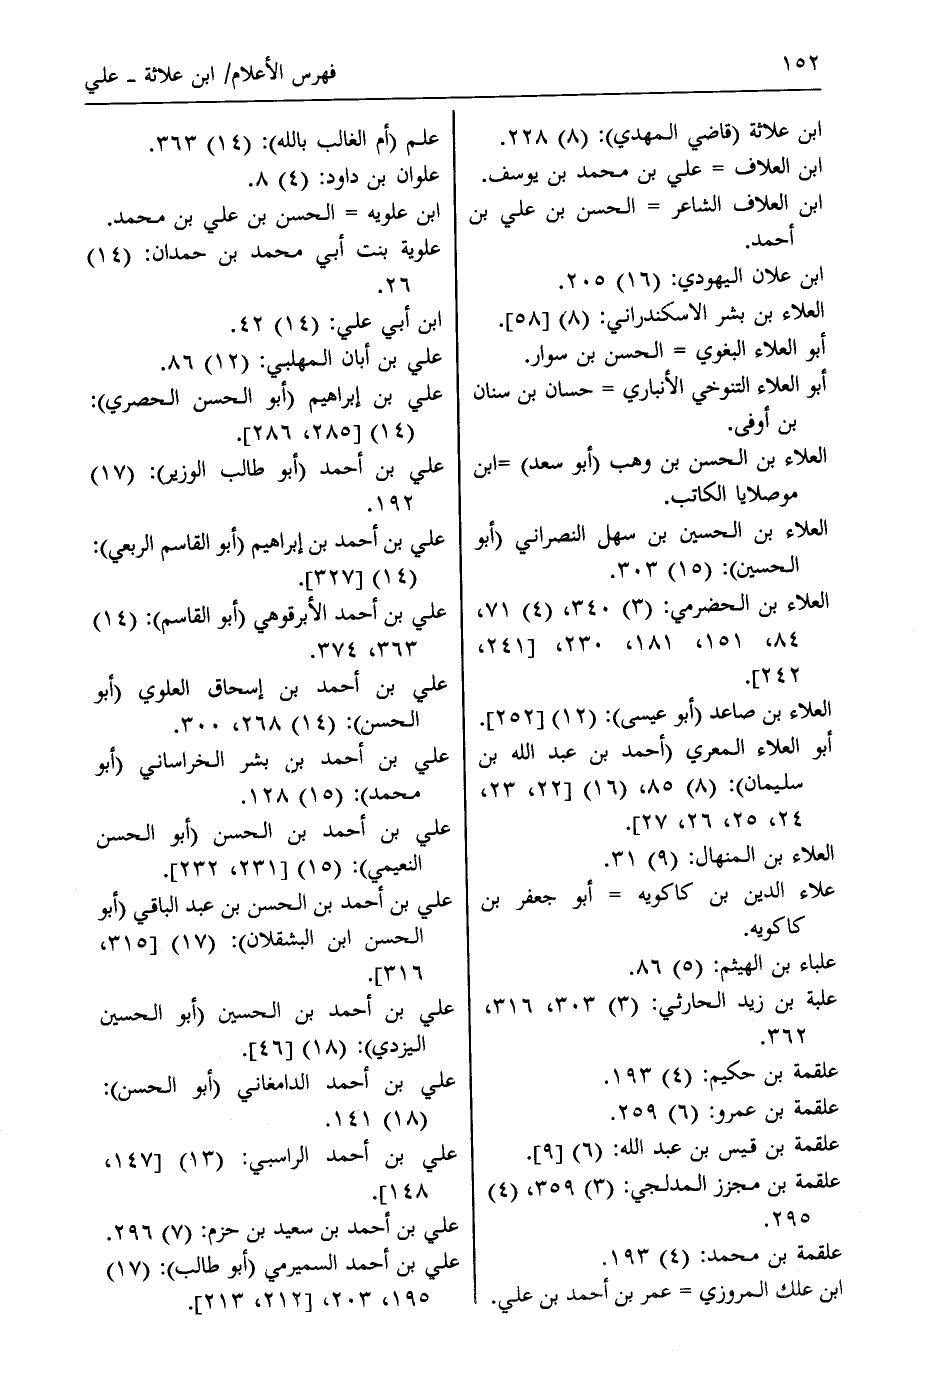 ١٥٢
فهرس الأعلام/ ابن علاثة ـ علي
ابن علاثة (قاضي المهدي): (٨) ٢٢٨.
ابن العلاف = علي بن محمد بن يوسف.
ابن العلاف الشاعر = الحسن بن علي بن
أحمد.
ابن علان اليهودي: (١٦) ٢٠٥.
العلاء بن بشر الاسكندراني: (٨) [٥٨].
أبو العلاء البغوي = الحسن بن سوار.
أبو العلاء التنوخي الأنباري = حسان بن سنان
بن أوفى.
العلاء بن الحسن بن وهب (أبو سعد) =ابن
موصلايا الكاتب.
العلاء بن الحسين بن سهل النصراني (أبو
الحسين): (١٥) ٣٠٣.
العلاء بن الحضرمي: (٣) ٣٤٠، (٤) ٧١،
٨٤، ١٥١، ١٨١، ٢٣٠، [٢٤١،
٢٤٢].
العلاء بن صاعد (أبو عيسى): (١٢) [٢٥٢].
أبو العلاء المعري (أحمد بن عبد الله بن
سليمان): (٨) ٨٥، (١٦) [٢٢، ٢٣،
٢٤، ٢٥، ٢٦، ٢٧].
العلاء بن المنهال: (٩) ٣١.
علاء الدين بن كاكويه = أبو جعفر بن
كاكويه.
علباء بن الهيثم: (٥) ٨٦.
علبة بن زيد الحارثي: (٣) ٣٠٣، ٣١٦،
٣٦٢.
علقمة بن حكيم: (٤) ١٩٣.
علقمة بن عمرو: (٦) ٢٥٩.
علقمة بن قيس بن عبد الله: (٦) [٩].
علقمة بن مجزز المدلجي: (٣) ٣٥٩، (٤)
٢٩٥.
علقمة بن محمد: (٤) ١٩٣.
ابن علك المروزي = عمر بن أحمد بن علي.
علم (أم الغالب بالله): (١٤) ٣٦٣.
علوان بن داود: (٤) ٨.
ابن علويه = الحسن بن علي بن محمد.
علوية بنت أبي محمد بن حمدان: (١٤)
٢٦.
ابن أبي علي: (١٤) ٤٢.
علي بن أبان المهلبي: (١٢) ٨٦.
علي بن إبراهيم (أبو الحسن الحصري):
(١٤) [٢٨٥، ٢٨٦].
علي بن أحمد (أبو طالب الوزير): (١٧)
١٩٢.
علي بن أحمد بن إبراهيم (أبو القاسم الربعي):
(١٤) [٣٢٧].
علي بن أحمد الأبرقوهي (أبو القاسم): (١٤)
٣٦٣، ٣٧٤.
علي بن أحمد بن إسحاق العلوي (أبو
الحسن): (١٤) ٢٦٨، ٣٠٠.
علي بن أحمد بن بشر الخراساني (أبو
محمد): (١٥) ١٢٨.
علي بن أحمد بن الحسن (أبو الحسن
النعيمي): (١٥) [٢٣١، ٢٣٢].
علي بن أحمد بن الحسن بن عبد الباقي (أبو
الحسن ابن البشقلان): (١٧) [٣١٥،
٣١٦].
علي بن أحمد بن الحسين (أبو الحسين
اليزدي): (١٨) [٤٦].
علي بن أحمد الدامغاني (أبو الحسن):
(١٨) ١٤١.
علي بن أحمد الراسبي: (١٣) [١٤٧،
١٤٨].
علي بن أحمد بن سعيد بن حزم: (٧) ٢٩٦.
علي بن أحمد السميرمي (أبو طالب): (١٧)
١٩٥، ٢٠٣، [٢١٢، ٢١٣].